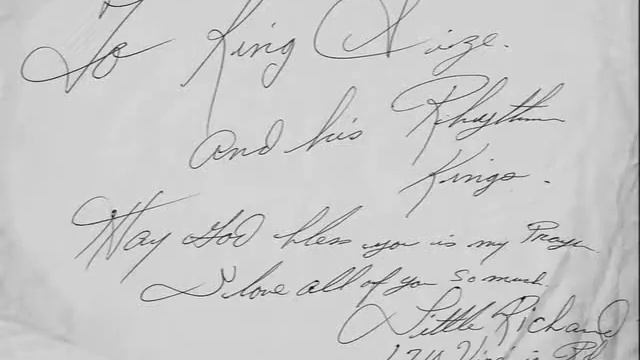 To King Size.
and his Rhythm
Kings.
May God bless you is my Prayer
I love all of you so much.
Little Richard